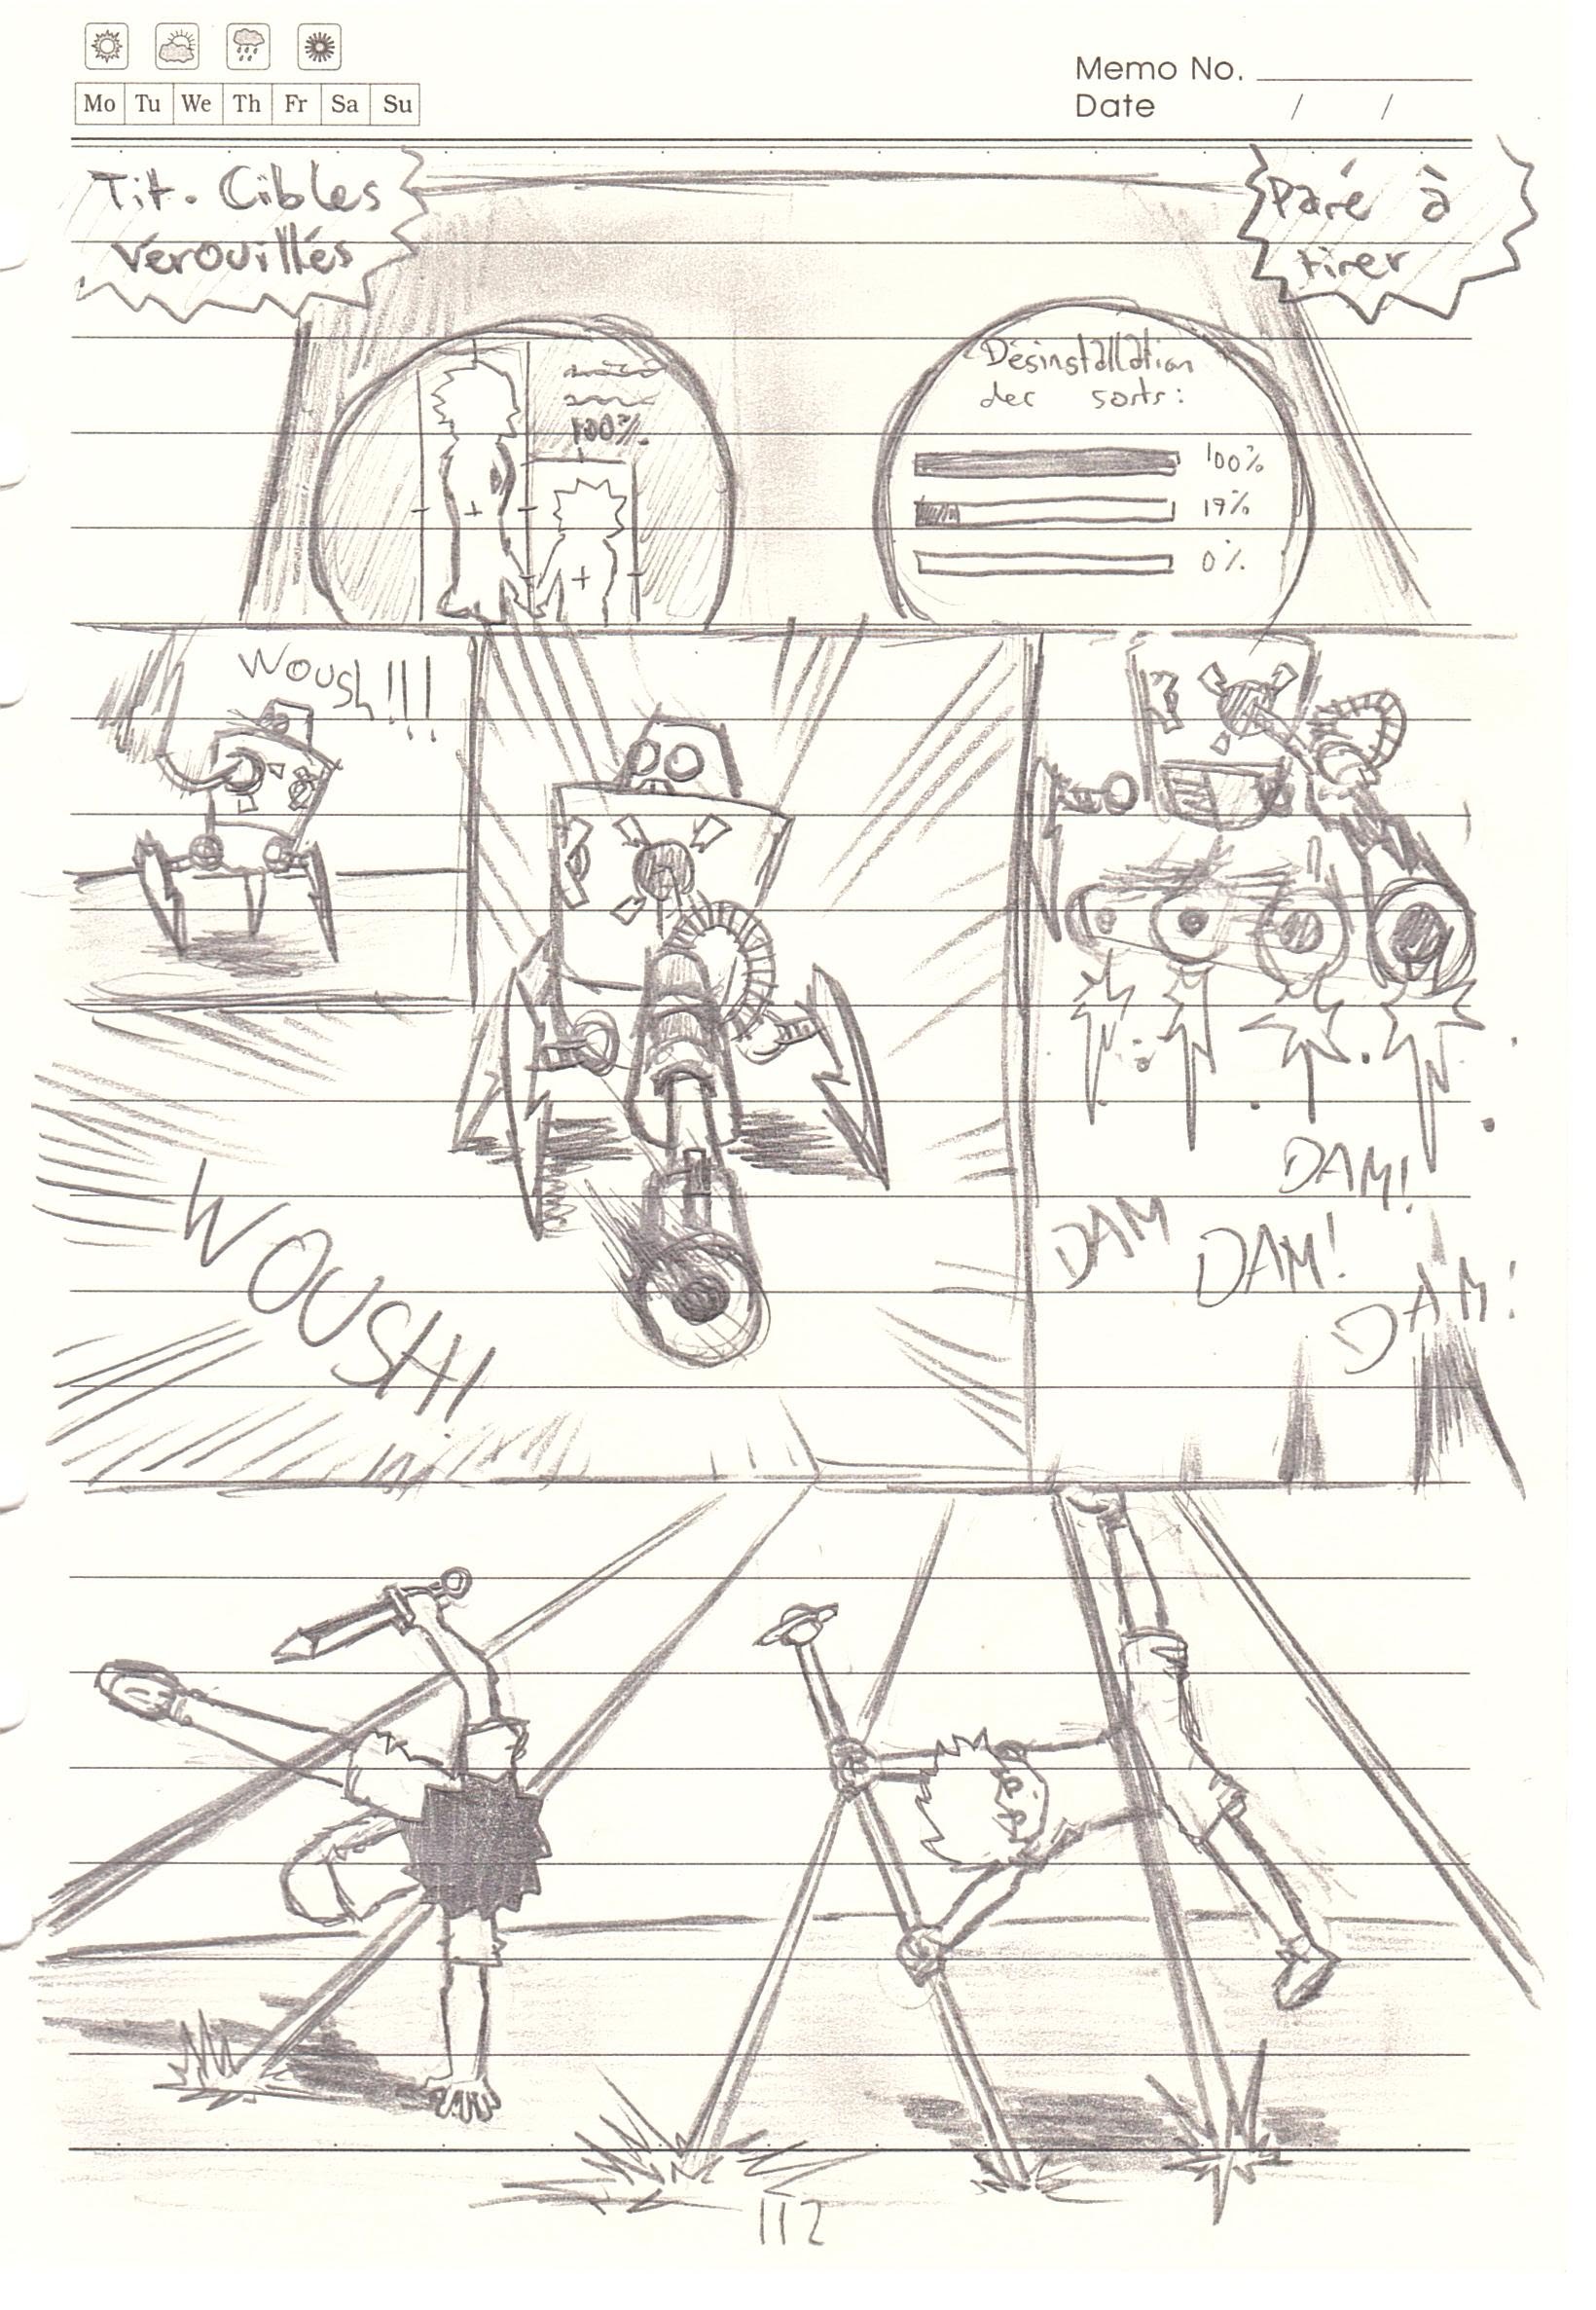 Mo Tu We Th Fr Sa Su
Memo No.
Date / /
Tit. Cibles
vérouillés
Paré à
tirer
100%
Désinstallation
des sorts:
100%
19%
0%
Woush!!!
WOUSH!
DAM!
DAM
DAM!
DAM!
112